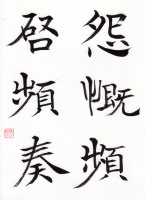 怨慨頻
啓頻奏